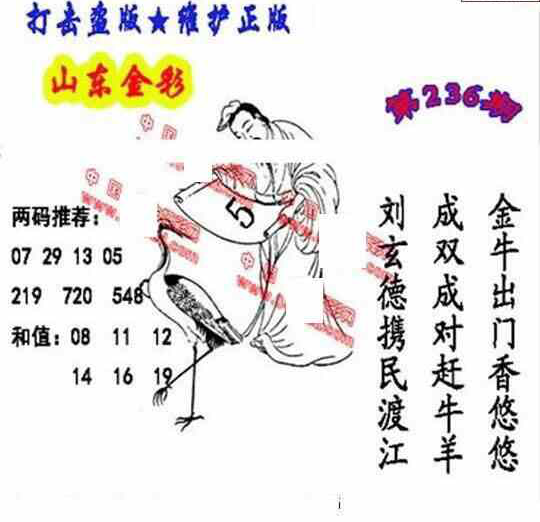 打击盗版★维护正版
山东金彩
第236期
两码推荐:
07 29 13 05
219 720 548
和值: 08 11 12
14 16 19
5
金牛出门香悠悠
成双成对赶牛羊
刘玄德携民渡江
中国
www.
.com